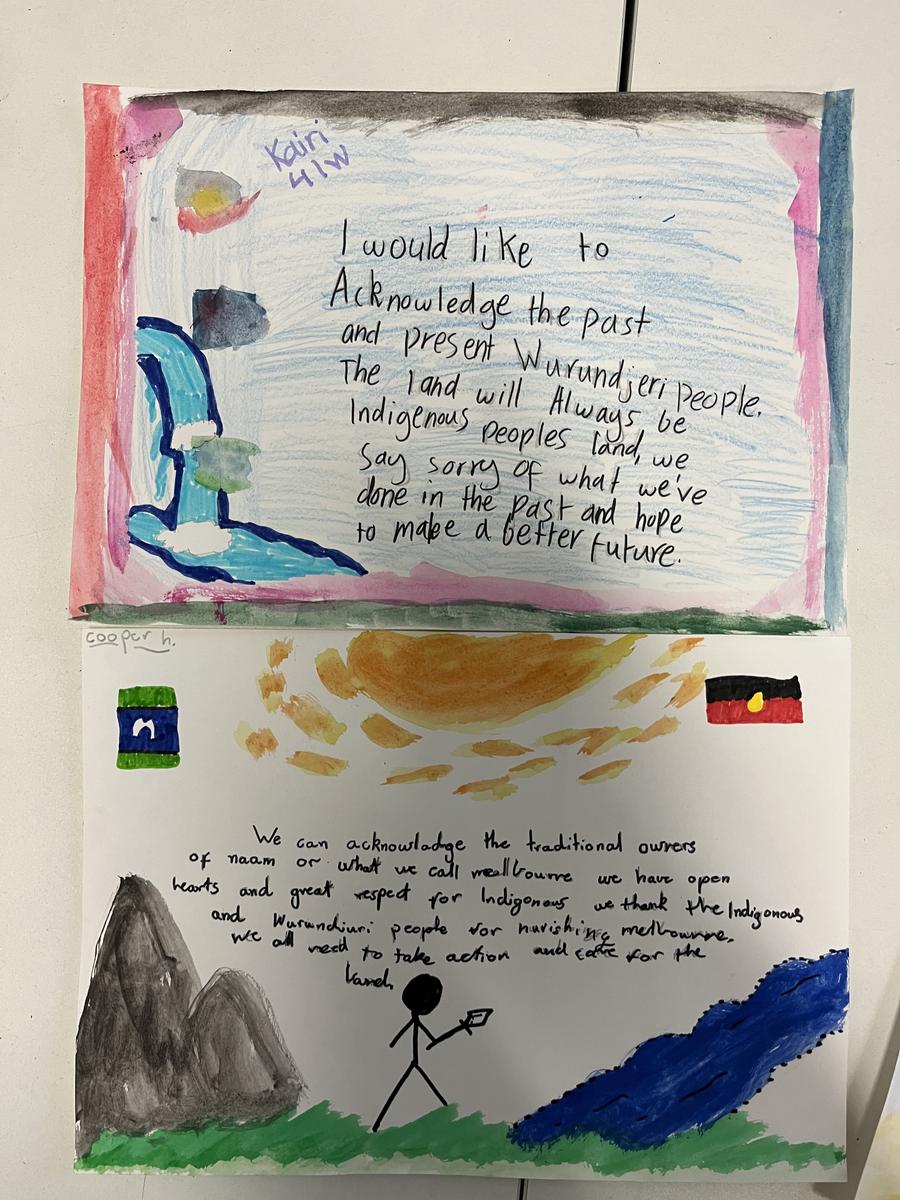 Kairi
4/W
I would like to
Acknowledge the past
and present Wurundjeri people.
The land will Always be
Indigenous peoples land, we
say sorry of what we've
done in the past and hope
to make a better future.
cooper h.
We can acknowladge the traditional owners
of naam or what we call mellbourne we have open
hearts and great respect for Indigonous we thank the Indigonous
and Wurundiuri people for nurishing melbourne.
We all need to take action and care for the
land.